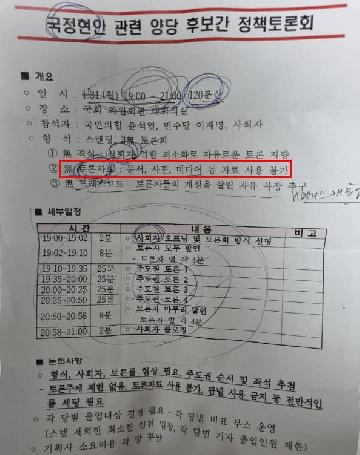 국정현안 관련 양당 후보간 정책토론회
■ 개요
○ 일 시 : 1.31(월) 19:00 ~ 21:00 120분
○ 장 소 : 국회 의원회관 대회의실
○ 참석자 : 국민의힘 윤석열, 민주당 이재명, 사회자
○ 형 식 : 스탠딩, 3無 토론회
① 無 격식 : 사회자 역할 최소화로 자유로운 토론 지향
② 無 토론자료 : 문서, 사진, 미디어 등 자료 사용 불가
③ 無 드레스코드 : 토론자들의 개성을 살린 자유 복장
■ 세부일정
시 간 내 용 비 고
19:00-19:02 2분 ○ 사회자 오프닝 및 토론회 방식 설명
19:02-19:10 8분 ○ 토론자 모두 발언
- 토론자 별 각 4분
19:10-19:35 25분 ○ 주도권 토론 1
19:35-20:00 25분 ○ 주도권 토론 2
20:00-20:25 25분 ○ 주도권 토론 3
20:25-20:50 25분 ○ 주도권 토론 4
20:50-20:58 8분 ○ 토론자 마무리 발언
- 토론자 별 각 4분
20:58-21:00 2분 ○ 사회자 클로징
■ 논의사항
○ 형식, 사회자, 토론룰 협상 필요, 주도권 순서 및 좌석 추첨
- 토론주제 제한 없음, 토론자료 사용 불가, 판넬 사용 금지 등 전반적인
룰 세팅 필요
○ 각 당별 출입대상 결정 필요 - 각 당별 비표 부스 운영
(스텝 제외한 최소한 정원 입장, 각 당별 기자 출입인원 제한)
○ 기획사 소요비용 각 당 부담